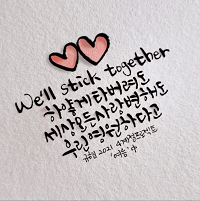 We'll stick together
하얗게 타버려도
세상 모든 사랑 변해도
우린 영원하다고
규현 2021 4계 프로젝트
'여름' 中